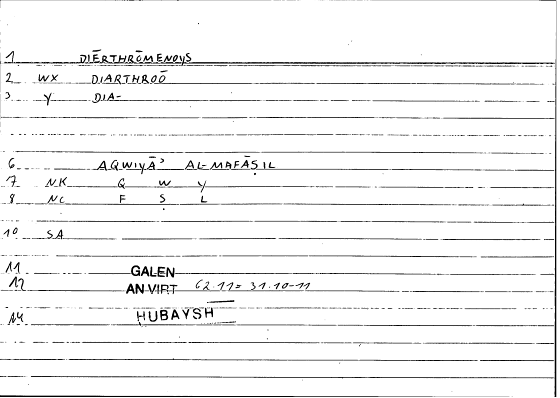 1 DIĒRTHRŌMENOYS
2 WX DIARTHROŌ
3 Y DIA-
6 AQWIYĀʾ AL-MAFĀṢIL
7 NK Q W Y
8 NL F Ṣ L
10 SA
11 GALEN
12 AN VIRT 62.11 = 31.10-11
14 HUBAYSH